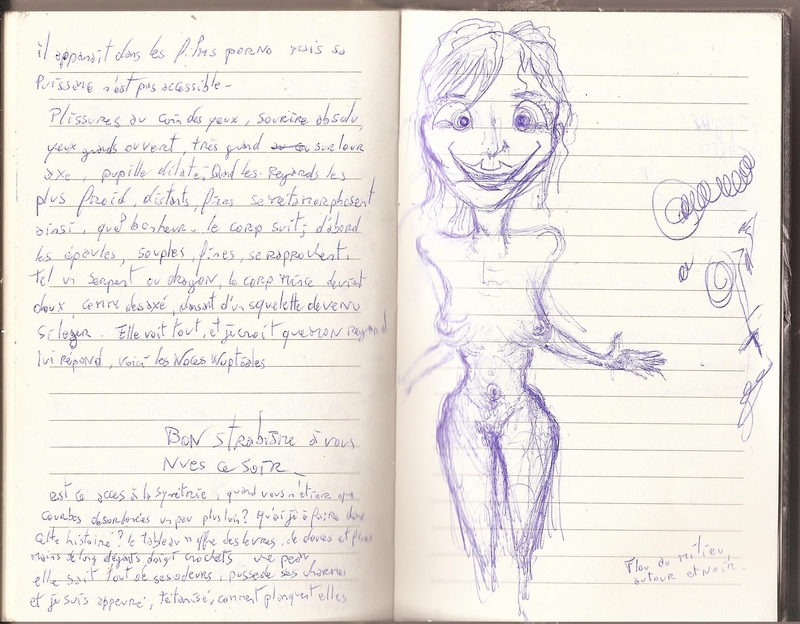 il apparait dans les films porno mais sa
Puissance n'est pas accessible -
Plissures au coin des yeux, sourire absolu,
yeux grands ouvert, très grand sur leur
axe, pupille dilaté, Quand les regards les
plus froid, distants, fiers se métamorphosent
ainsi, quel bonheur. le corp suit; d'abord
les épaules, souples, fines, se raprochent.
tel un serpent ou dragon, le corp mince devient
doux, comme désaxé, dansant d'un squelette devenu
si léger. Elle voit tout, et je croit que mon regard
lui répond, voici les Noces Nuptiales
BON Strabisme à vous
Nues ce soir _
est ce acces à la symétrie, quand vous n'étiez que
courbes désordonées un peu plus loin? Qu'ai je à faire dans
cette histoire? le tableau m'offre des levres, de douces et
mains de long doigt crochets une peau,
elle sait tout de ses odeurs, possède ses charmes
et je suis appeuré, tétanisé, comment elles
Flou du milieu,
autour et noir.